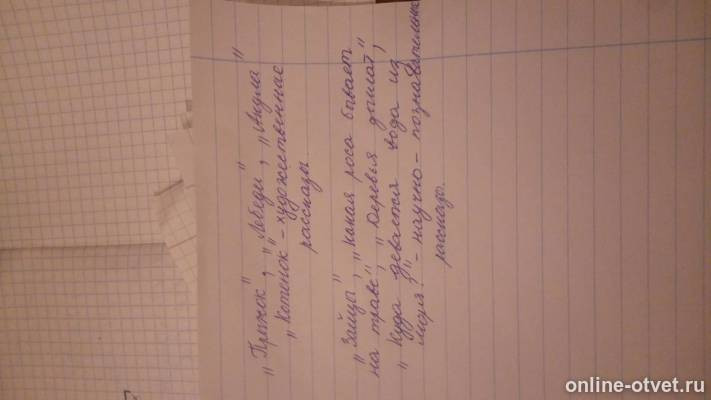 „Прыжок", „Лебеди", „Акула"
„Котёнок" - художественные
рассказы
„Зайцы", „Какая роса бывает
на траве", „Деревья дышат",
„Куда девается вода из
моря?" - научно - познавательные
рассказы.
online-otvet.ru